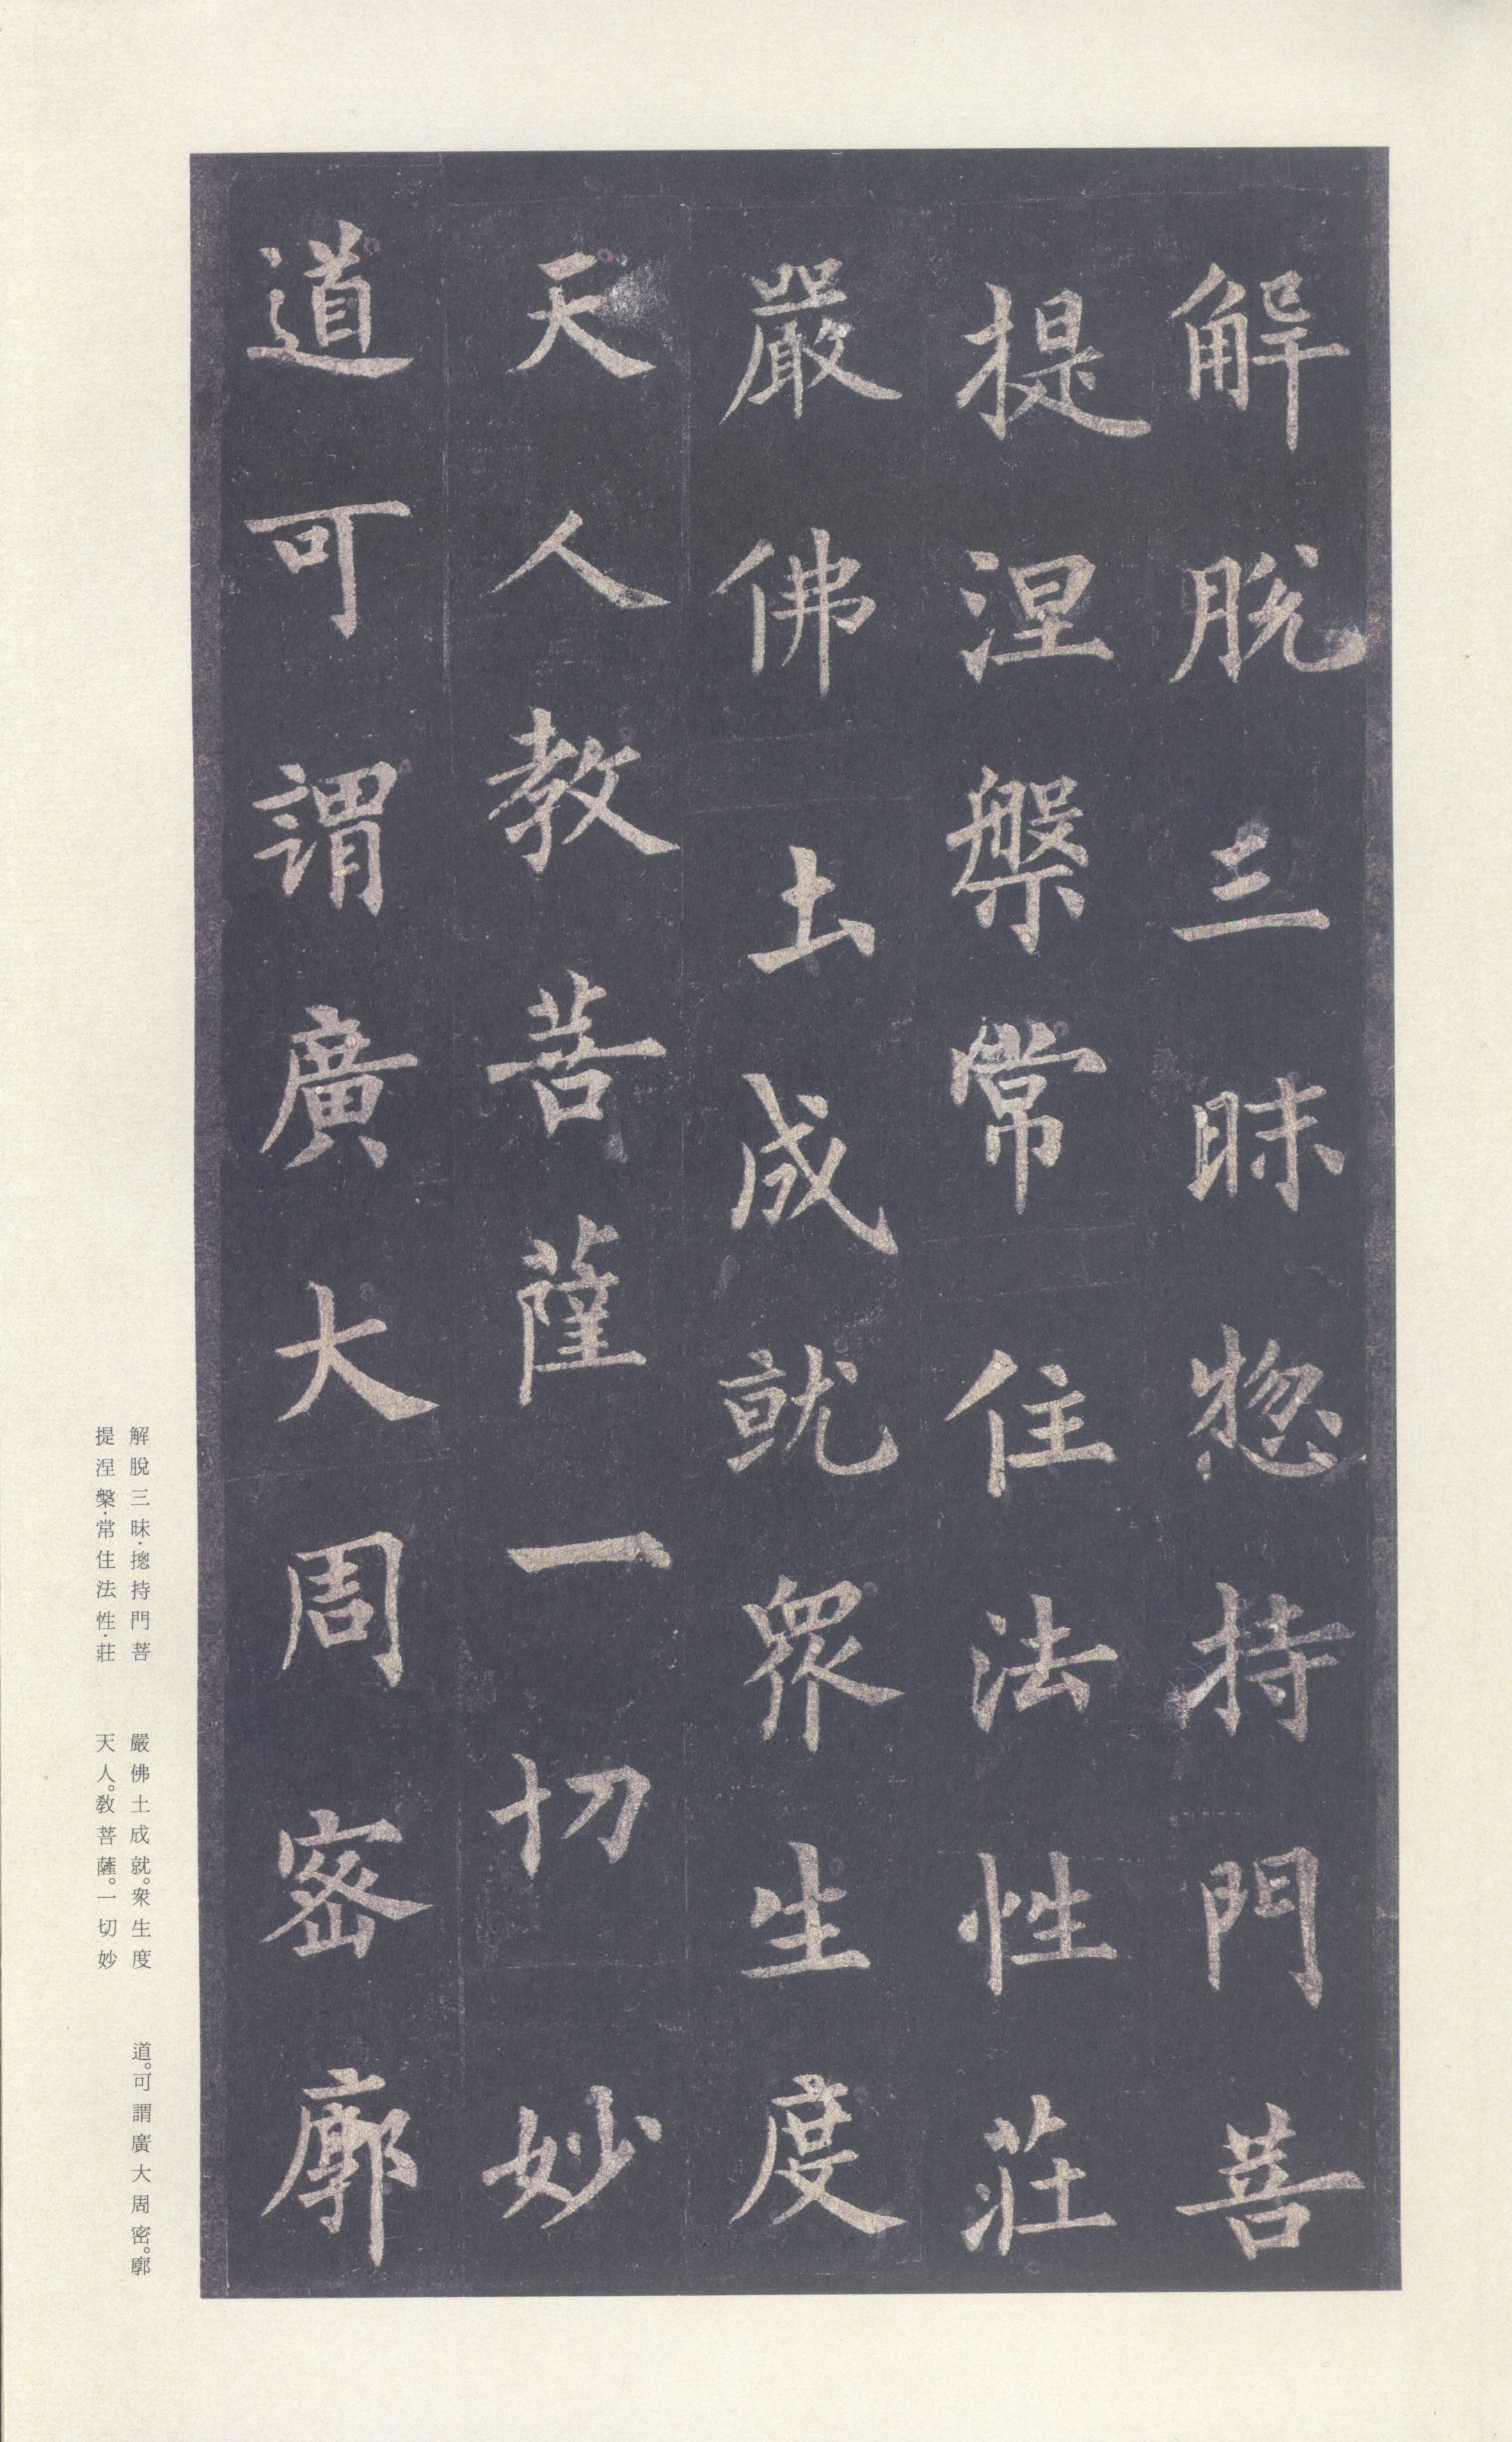 解脫三昧惣持門菩
提涅槃常住法性莊
嚴佛土成就眾生度
天人教菩薩一切妙
道可謂廣大周密廓
解脫三昧·摠持門菩
提涅槃·常住法性·莊
嚴佛土成就。衆生度
天人。教菩薩。一切妙
道。可謂廣大周密。廓